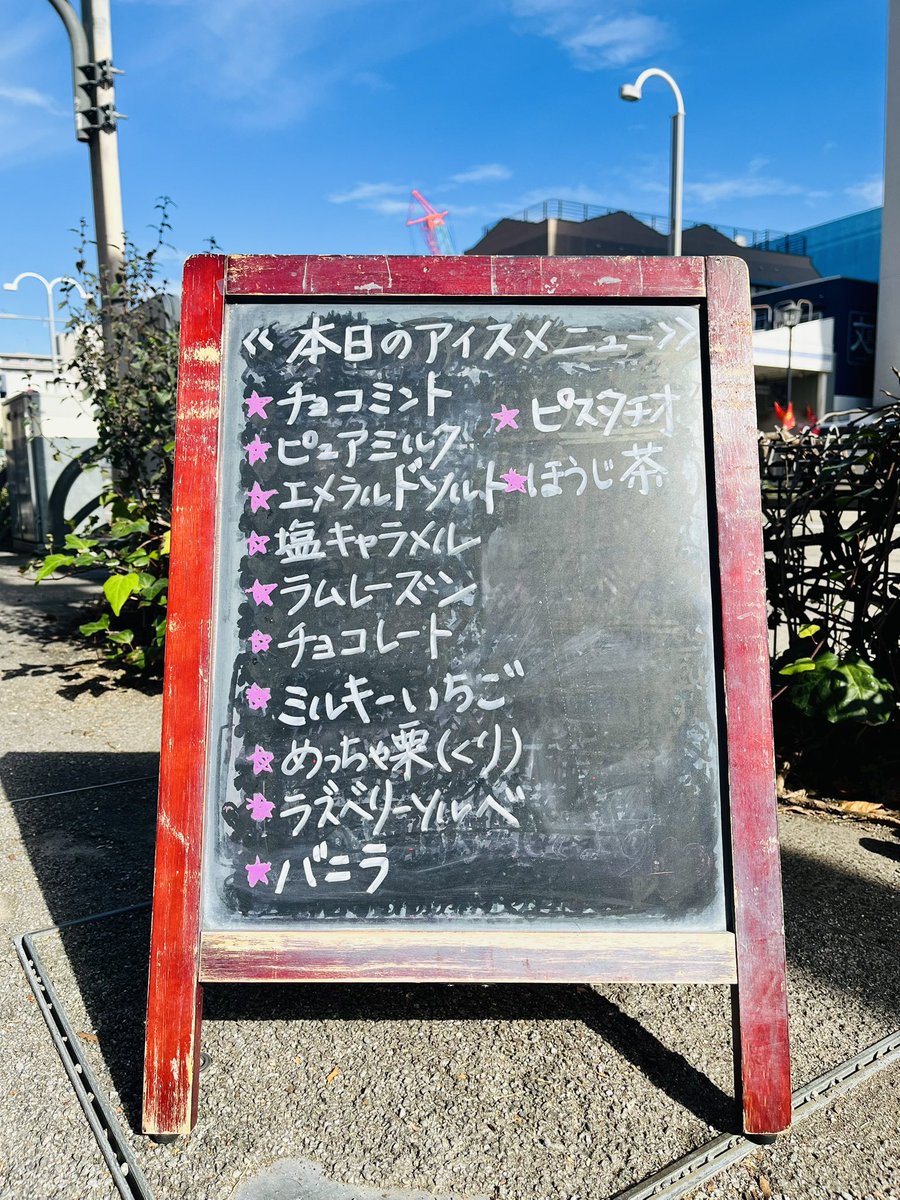 ≪本日のアイスメニュー≫
★チョコミント
★ピュアミルク
★エメラルドソルト
★塩キャラメル
★ラムレーズン
★チョコレート
★ミルキーいちご
★めっちゃ栗(くり)
★ラズベリーソルベ
★バニラ
★ピスタチオ
★ほうじ茶